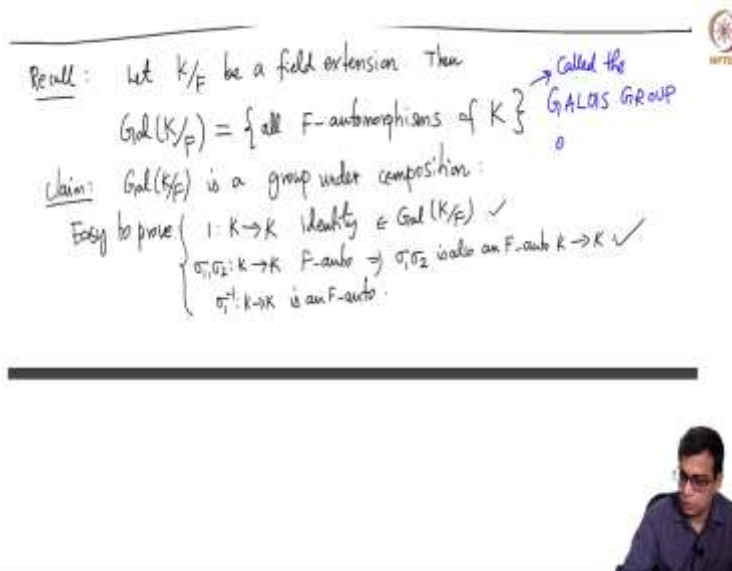 Recall: Let K/F be a field extension. Then
Gal(K/F) = { all F-automorphisms of K } → Called the
GALOIS GROUP
o
Claim: Gal(K/F) is a group under composition:
Easy to prove { 1: K→K identity ∈ Gal(K/F) ✓
σ₁,σ₂: K→K F-auto ⇒ σ₁σ₂ is also an F-auto K→K ✓
σ₁⁻¹: K→K is an F-auto.
NPTEL